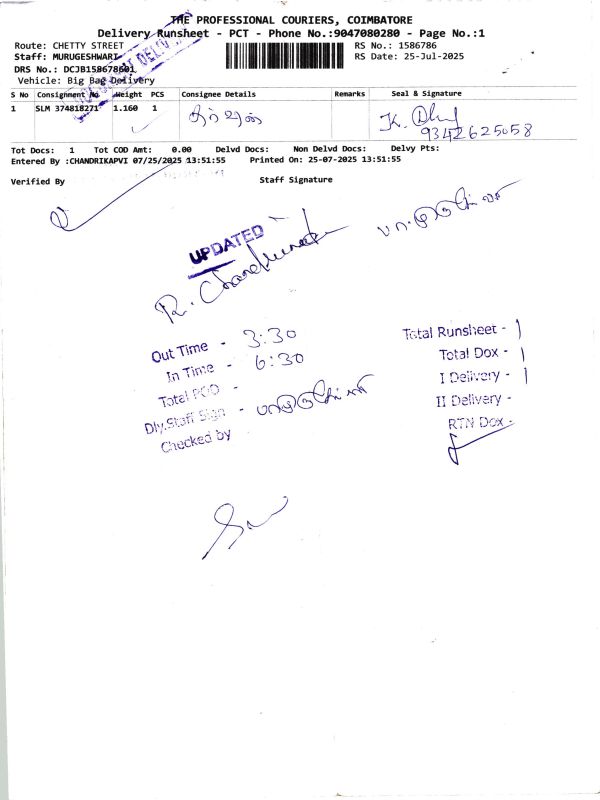 THE PROFESSIONAL COURIERS, COIMBATORE
Delivery Runsheet - PCT - Phone No.:9047080280 - Page No.:1
Route: CHETTY STREET
RS No.: 1586786
Staff: MURUGESHWARI
RS Date: 25-Jul-2025
DRS No.: DCJB158678601
Vehicle: Big Bag Delivery
S No Consignment No Weight PCS Consignee Details Remarks Seal & Signature
1 SLM 374818271 1.160 1
9342625058
Tot Docs: 1 Tot COD Amt: 0.00 Delvd Docs: Non Delvd Docs: Delvy Pts:
Entered By :CHANDRIKAPVI 07/25/2025 13:51:55 Printed On: 25-07-2025 13:51:55
Verified By Staff Signature
UPDATED
Out Time - 3:30
In Time - 6:30
Total POD -
Dly.Staff Sign -
Checked by
Total Runsheet - 1
Total Dox - 1
I Delivery - 1
II Delivery -
RTN Dox -